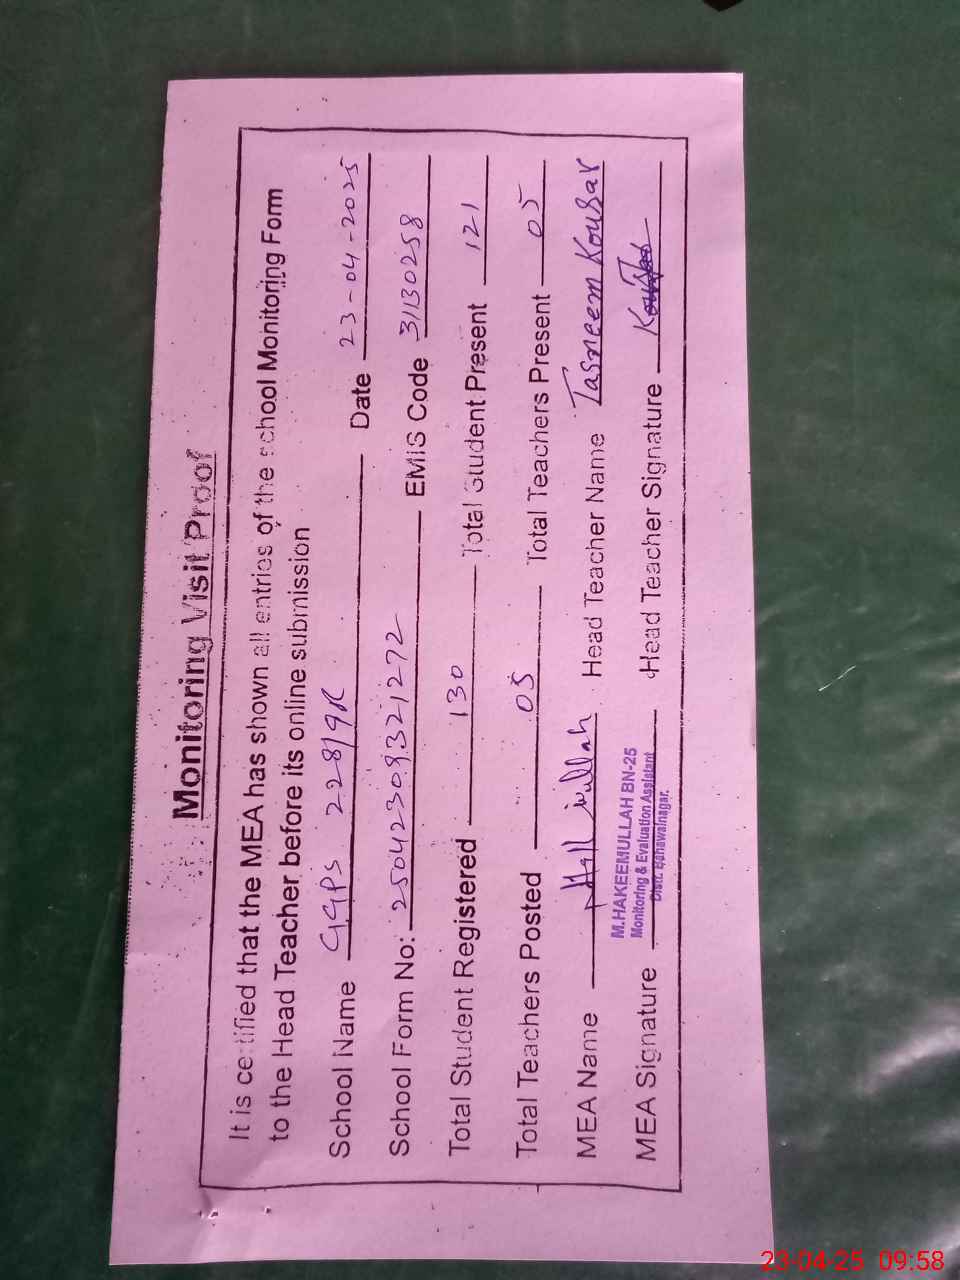 Monitoring Visit Proof
It is certified that the MEA has shown all entries of the school Monitoring Form
to the Head Teacher before its online submission
School Name GGPS 228/9R Date 23-04-2025
School Form No: 25042309321272 EMIS Code 31130258
Total Student Registered 130 Total Student Present 121
Total Teachers Posted 05 Total Teachers Present 05
MEA Name Head Teacher Name Tasneem Kousar
M.HAKEEMULLAH BN-25
Monitoring & Evaluation Assistant
Distt. Bahawalnagar.
MEA Signature Head Teacher Signature
23-04-25 09:58